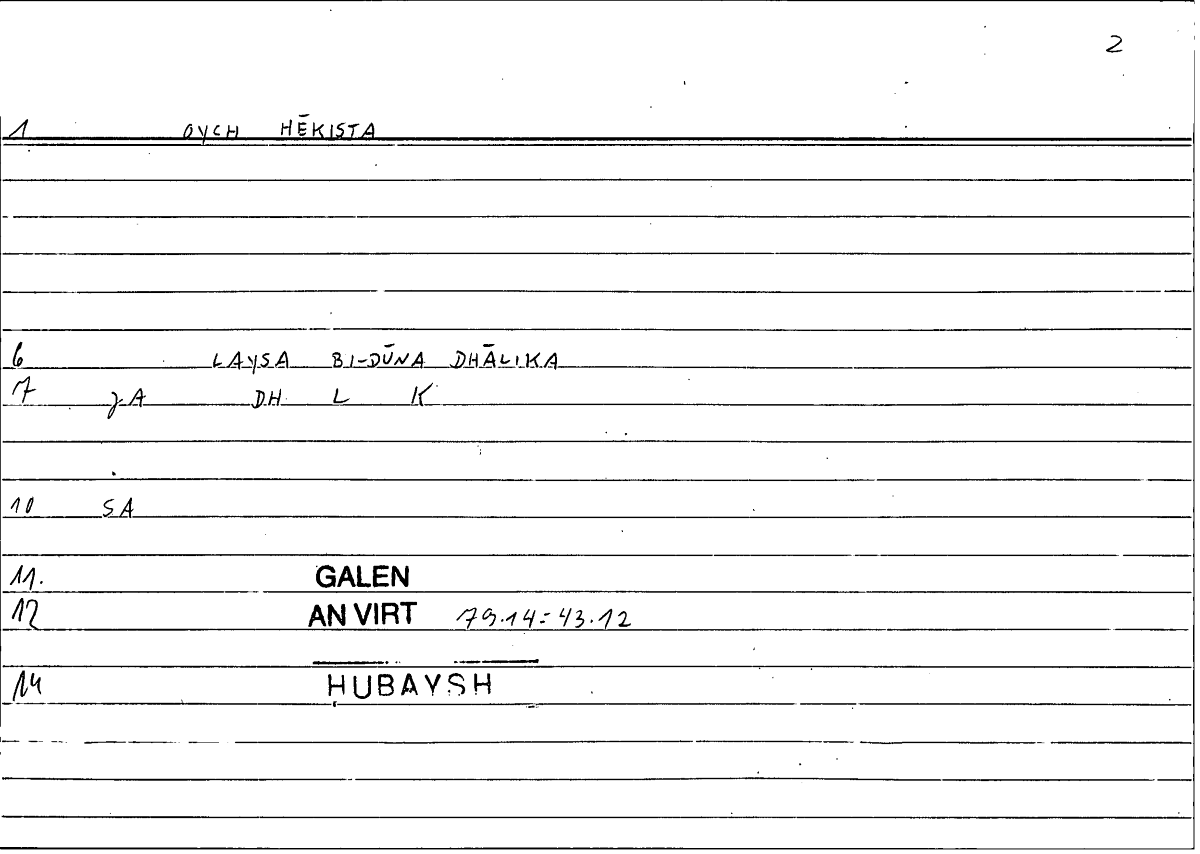 2
1 OYCH HĒKISTA
6 LAYSA BI-DŪNA DHĀLIKA
7 A DH L K
10 SA
11. GALEN
12 AN VIRT 79.14=43.12
14 HUBAYSH